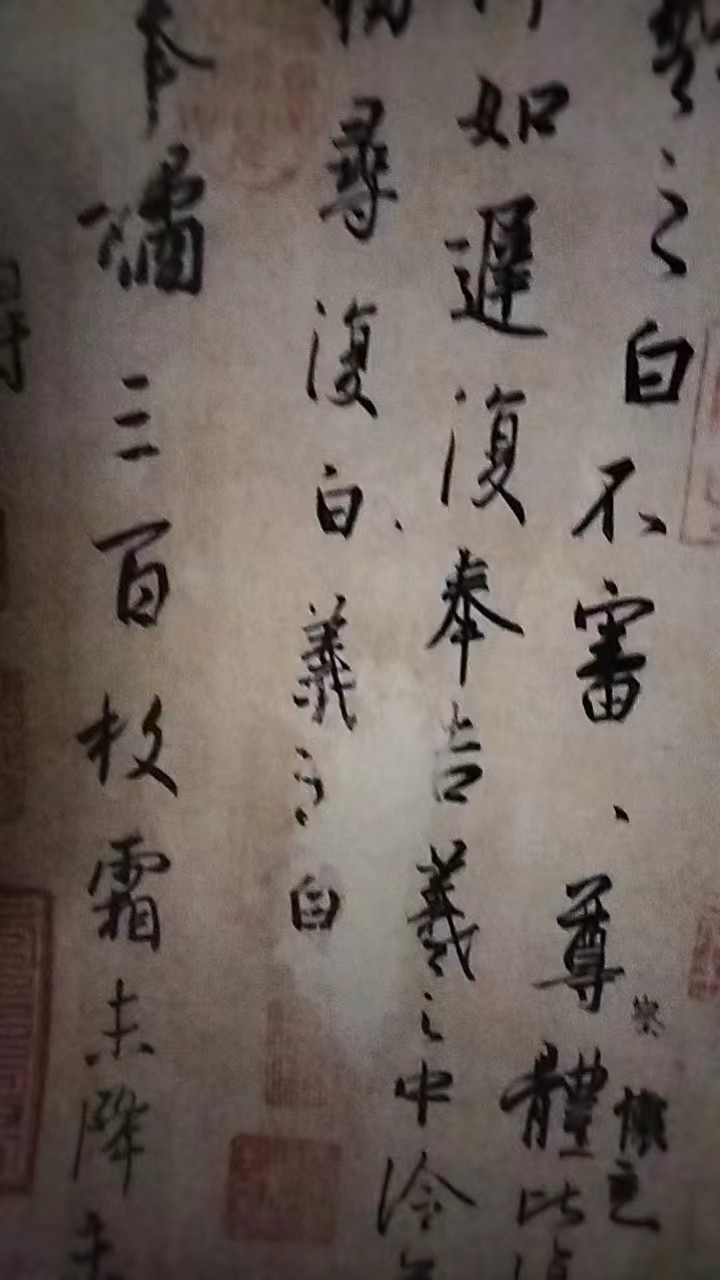 羲之白不審、尊體比復
察
懷充
如遲復奉告羲之中冷無
尋復白、羲之白
奉橘三百枚霜未降未